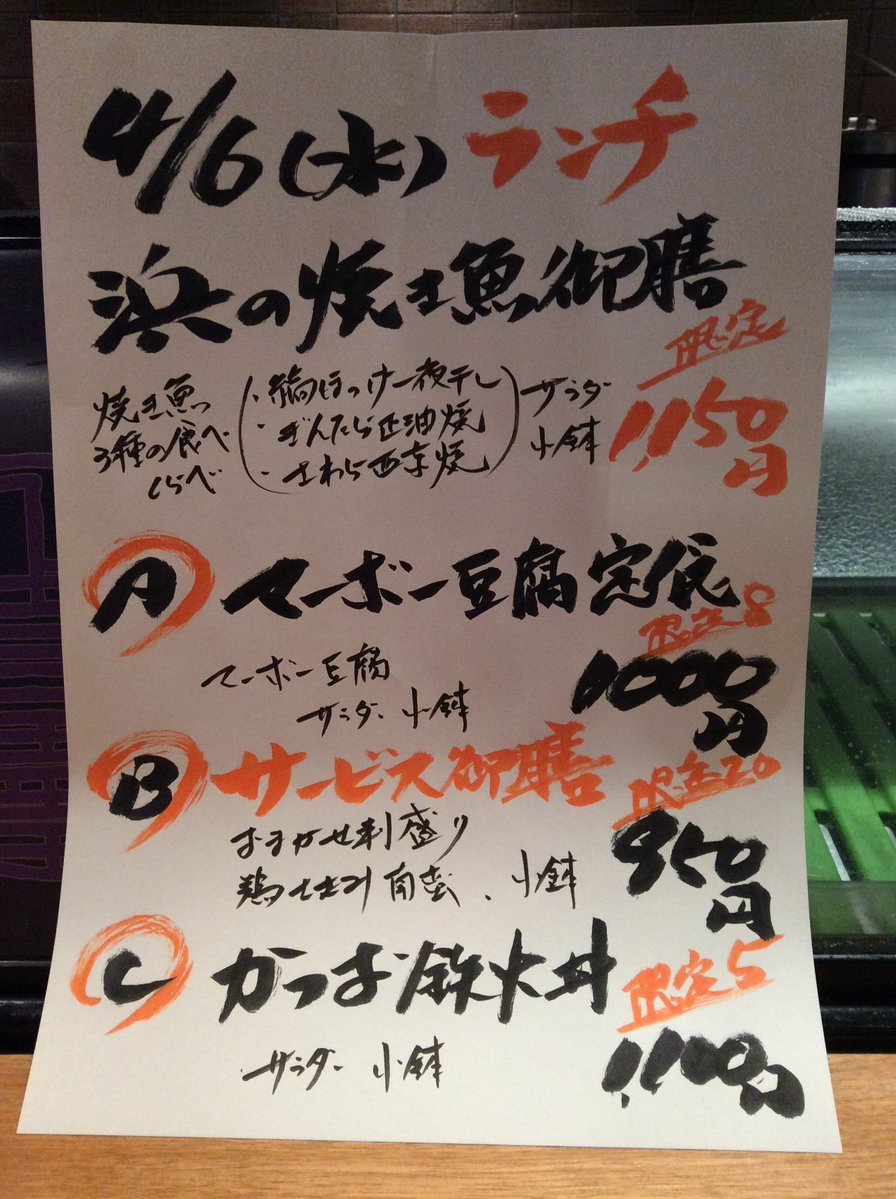 4/6(水)ランチ
浜の焼き魚御膳
限定
1,150円
焼き魚
3種の食べ
くらべ
・縞ほっけ一夜干し
・ぎんだら正油焼
・さわら西京焼
サラダ
小鉢
A マーボー豆腐定食
限定8
1000円
マーボー豆腐
サラダ 小鉢
B サービス御膳
限定20
950円
おまかせ刺盛り
鶏
小鉢
C かつお鉄火丼
限定5
1,100円
サラダー 小鉢